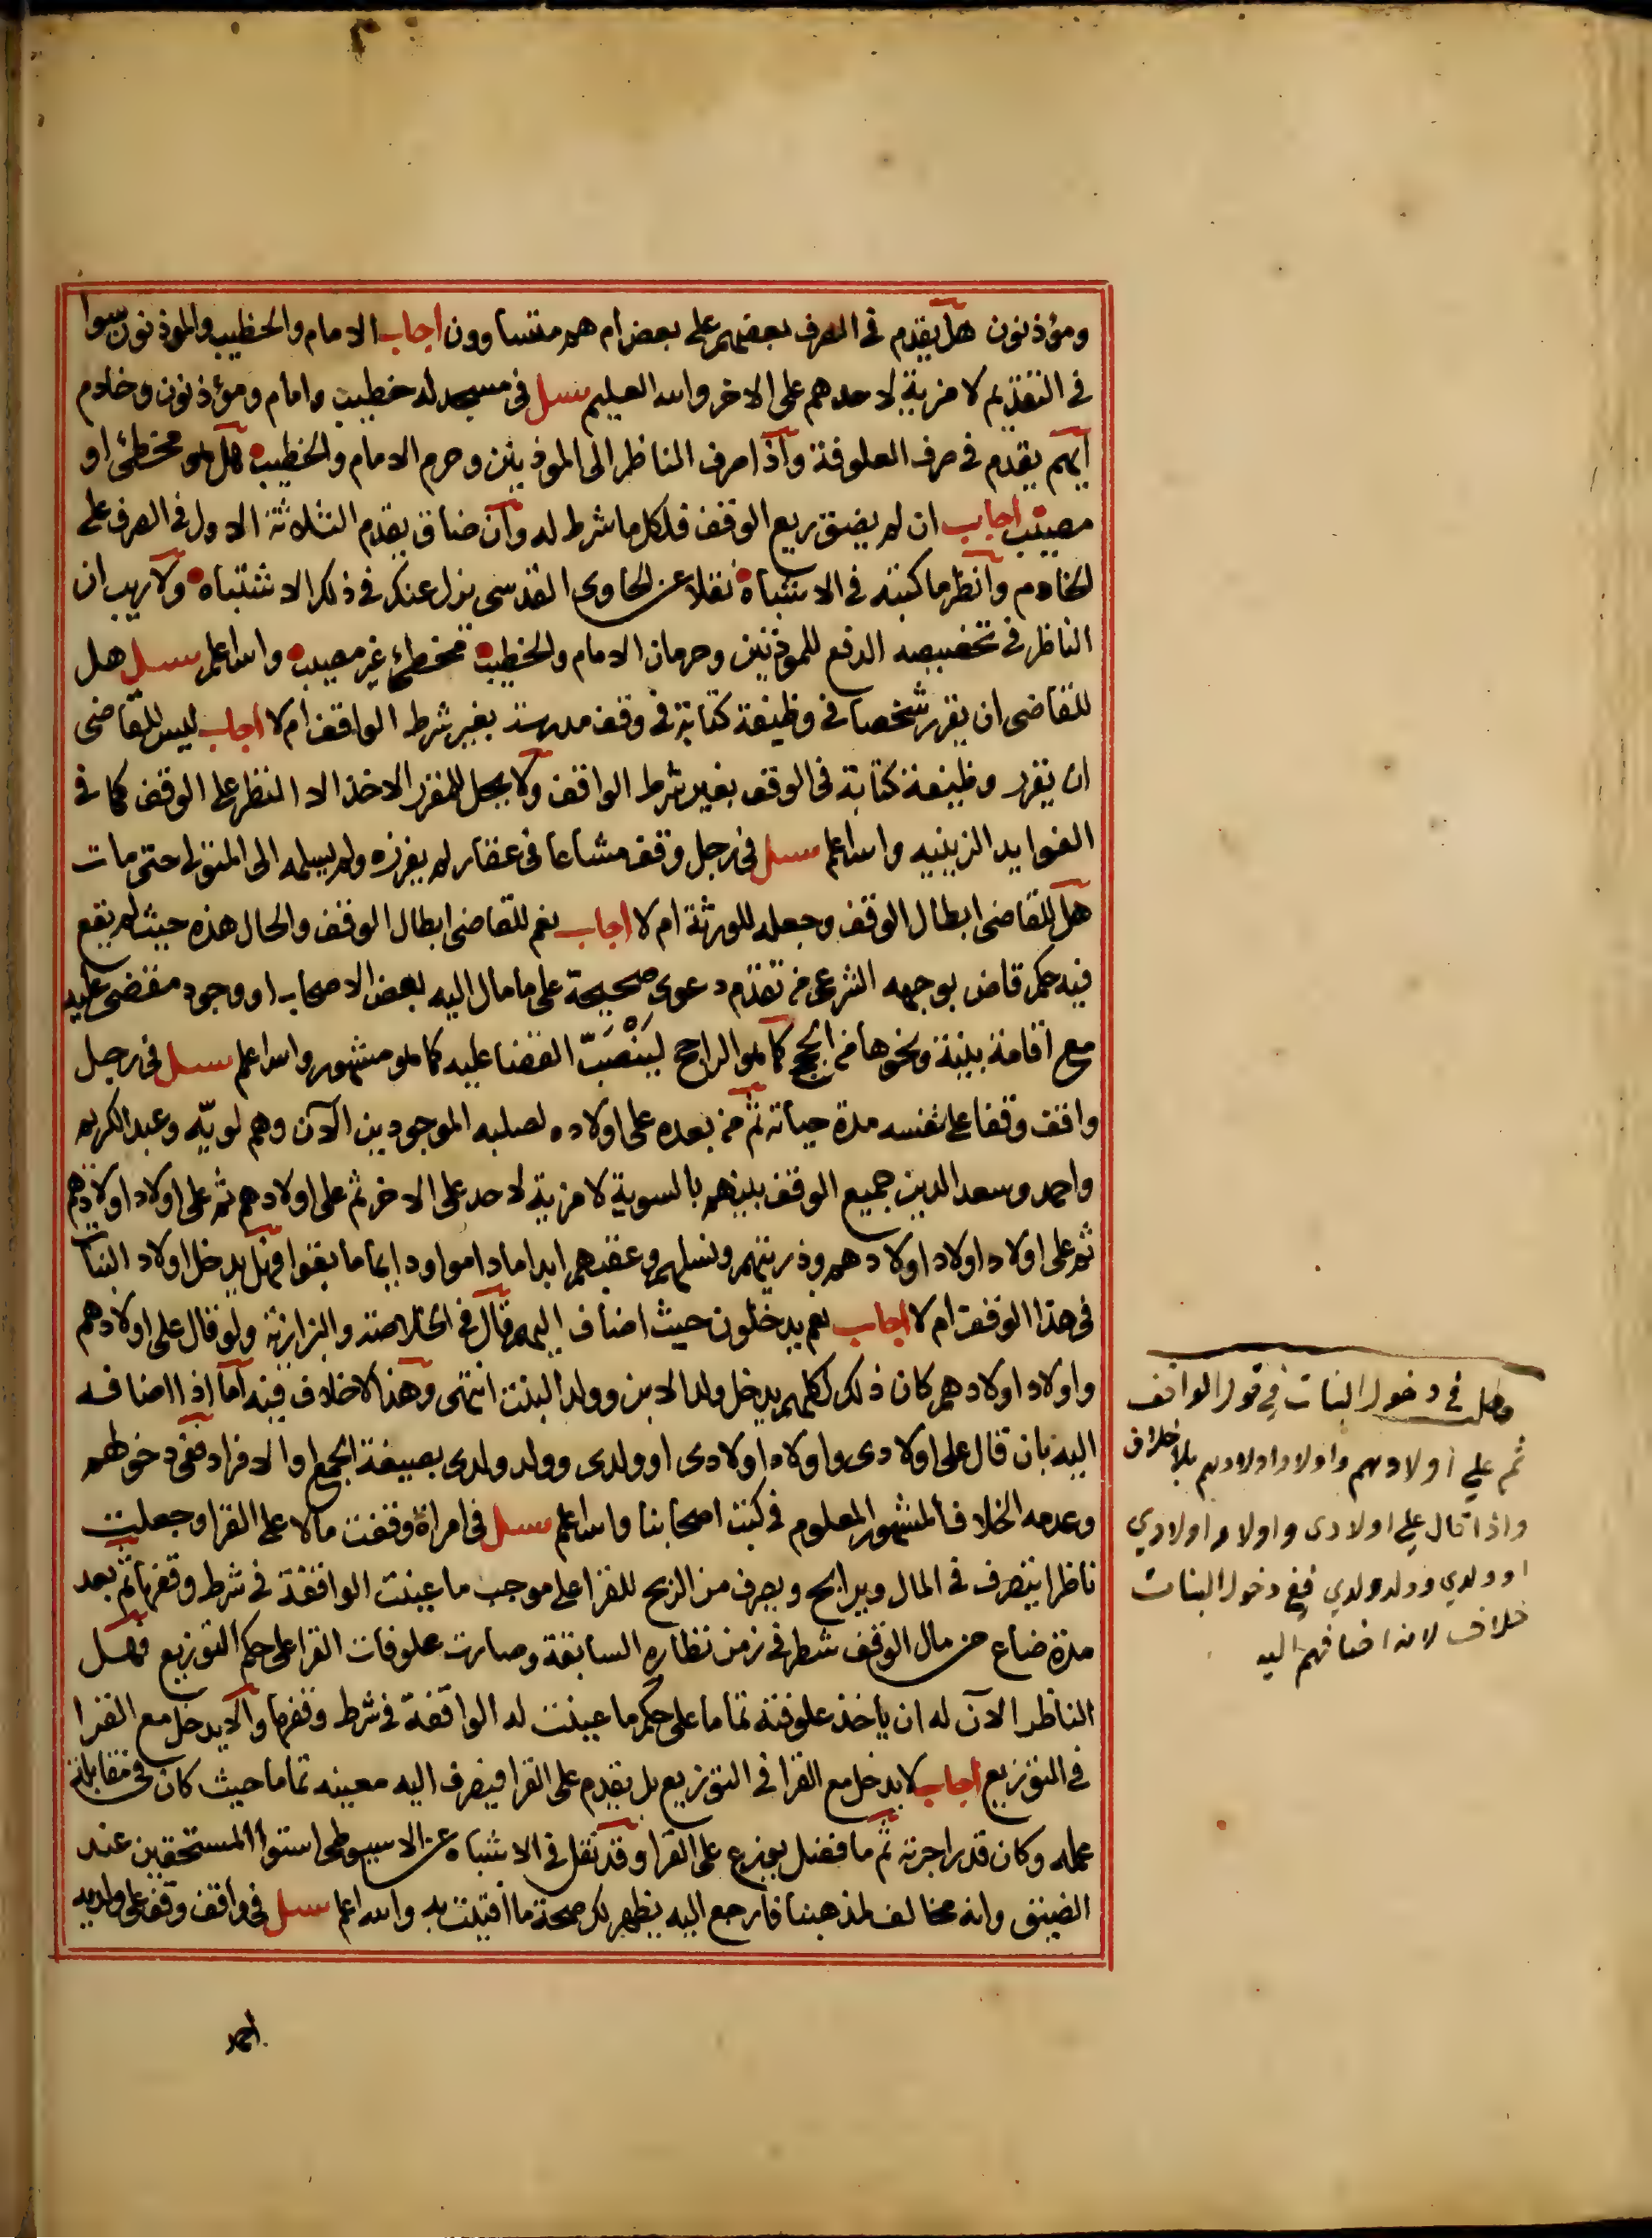 ومؤذنون هل يقدم في الصرف بعضهم على بعض ام هم متساوون اجاب الامام والخطيب والموذنون سوا
في التقديم لا مزية لاحدهم على الاخر والله العليم سئل في مسجد له خطيب وامام ومؤذنون وخادم
ايهم يقدم في صرف العلوفة واذا صرف الناظر الى الموذنين وحرم الامام والخطيب هل هو مخطئ او
مصيب اجاب ان لم يضق ريع الوقف فلكل ما شرط له وان ضاق يقدم الثلاثة الاول في الصرف على
الخادم وانظر ما كتبته في الاشباه نقلا عن الحاوى القدسى يزل عنك في ذلك الاشتباه ولا ريب ان
الناظر في تخصيصه الدفع للموذنين وحرمان الامام والخطيب مخطئ غير مصيب والله اعلم سئل هل
للقاضى ان يقرر شخصا في وظيفة كتابة في وقف مدرسة بغير شرط الواقف ام لا اجاب ليس للقاضى
ان يقرر وظيفة كتابة في الوقف بغير شرط الواقف ولا يحل للمقرر الاخذ الا النظر على الوقف كما في
الفوايد الزينيه والله اعلم سئل في رجل وقف مشاعا في عقار لم يفرزه ولم يسلمه الى المتولى حتى مات
هل للقاضى ابطال الوقف وجعله للورثة ام لا اجاب نعم للقاضى ابطال الوقف والحال هذه حيث لم يقع
فيه حكم قاض بوجهه الشرعى من تقدم دعوى صحيحة على ما مال اليه بعض الاصحاب او وجود مقضى عليه
مع اقامة بينة ونحوها من الحجج كما هو الراجح لينصب القضا عليه كما هو مشهور والله اعلم سئل في رجل
واقف وقفا على نفسه مدة حياته ثم من بعده على اولاده لصلبه الموجودين الآن وهم لويه وعبد الكريم
واحمد وسعد الدين جميع الوقف بينهم بالسوية لا مزية لاحد على الاخر ثم على اولادهم ثم على اولاد اولادهم
ثم على اولاد اولاد اولادهم وذريتهم ونسلهم وعقبهم ابدا ما داموا ودايما ما بقوا فهل يدخل اولاد البنات
في هذا الوقف ام لا اجاب نعم يدخلون حيث اضاف اليهم قال في الخلاصة والبزازية ولو قال على اولادهم
واولاد اولادهم كان ذلك لكلهم يدخل ولد الابن وولد البنت انتهى وهذا لا خلاف فيه اما اذا اضافه
اليه بان قال على اولادى واولاد اولادى او ولدى وولد ولدى بصيغة الجمع او الافراد ففى دخولهم
وعدمه الخلاف المشهور المعلوم في كتب اصحابنا والله اعلم سئل في امراة وقفت مالا على القرا وجعلت
ناظرا يتصرف في المال ويرابح ويصرف من الربح للقرا على موجب ما عينت الواقفة في شرط وقفها ثم بعد
مدة ضاع من مال الوقف شطر في زمن نظاره السابقة وصارت علوفات القرا على حكم التوزيع فهل
الناظر الآن له ان ياخذ علوفته تماما على حكم ما عينت له الواقفة في شرط وقفها والا يدخل مع القرا
في التوزيع اجاب لا يدخل مع القرا في التوزيع بل يقدم على القرا فيصرف اليه معينه تماما حيث كان في مقابلة
عمله وكان قدر اجرته ثم ما فضل يوزع على القرا وقد نقل في الاشباه عن الاسيوطى استوا المستحقين عند
الضيق وانه مخالف لمذهبنا فارجع اليه يظهر لك صحة ما افتيت به والله اعلم سئل في واقف وقف على ولديه
احمد
مطلب في دخول البنات في قول الواقف
ثم علي اولادهم واولاد اولادهم بلا خلاف
واذا قال علي اولادى واولاد اولادي
او ولدي وولد ولدي ففي دخول البنات
خلاف لانه اضافهم اليه